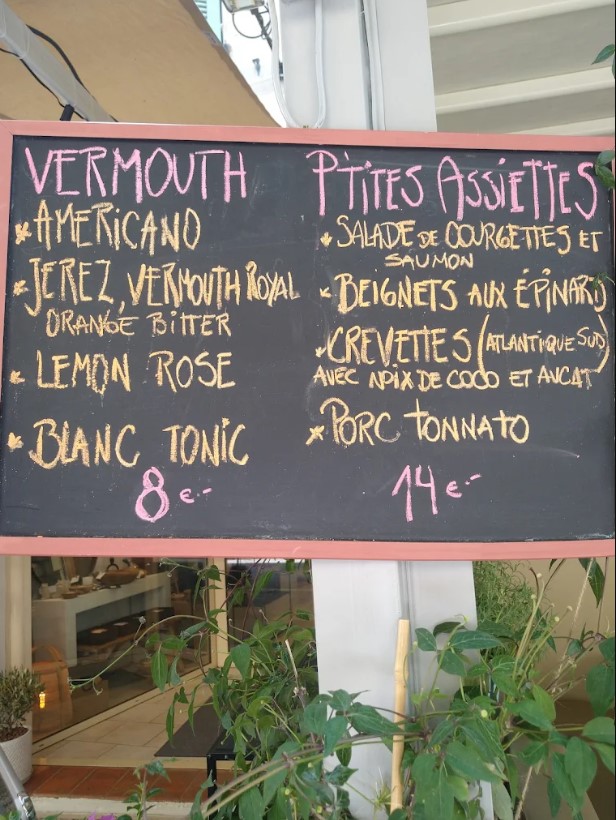 VERMOUTH
* AMERICANO
* JEREZ, VERMOUTH ROYAL
ORANGE BITTER
* LEMON ROSE
* BLANC TONIC
8 €.-
P'TITES ASSIETTES
* SALADE DE COURGETTES ET
SAUMON
* BEIGNETS AUX ÉPINARDS
* CREVETTES (ATLANTIQUE SUD)
AVEC NOIX DE COCO ET AVCAT
* PORC TONNATO
14 €.-